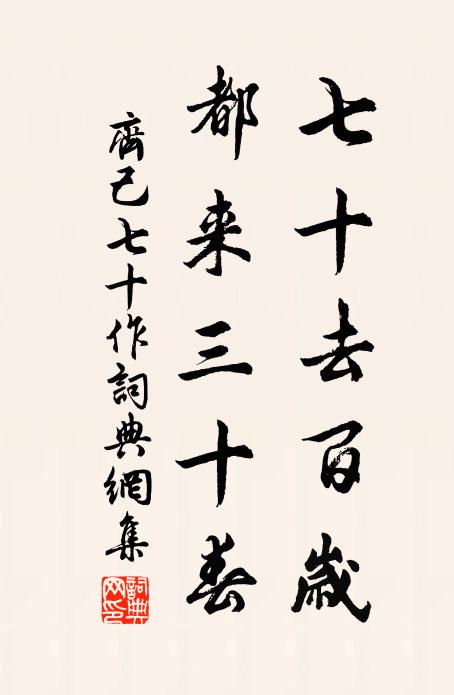 七十去百歲
都来三十春
齊己七十作詞典網集
詞典網印